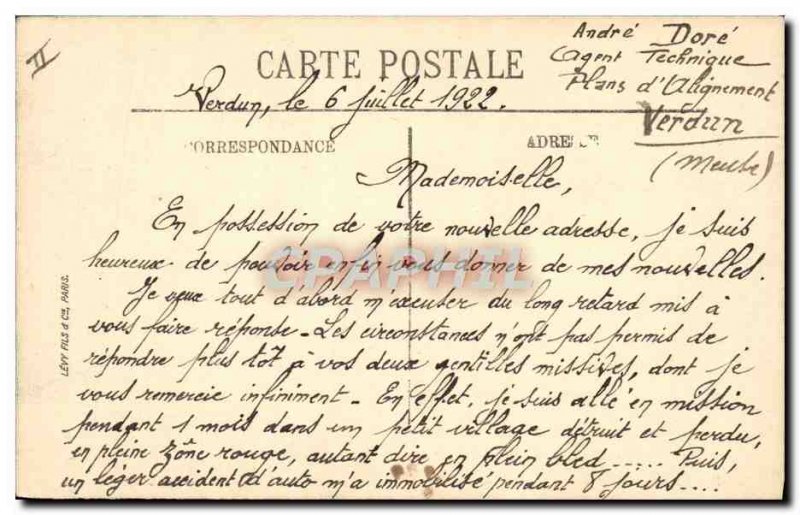 II
André Doré
Agent Technique
Plans d'Alignement
Verdun
(Meuse)
CARTE POSTALE
Verdun, le 6 Juillet 1922.
CORRESPONDANCE
ADRESSE
Mademoiselle,
En possession de votre nouvelle adresse, je suis
heureux de pouvoir enfin vous donner de mes nouvelles.
Je veux tout d'abord m'excuser du long retard mis à
vous faire réponse. Les circonstances n'ont pas permis de
répondre plus tôt à vos deux gentilles missives, dont je
vous remercie infiniment. En effet, je suis allé en mission
pendant 1 mois dans un petit village détruit et perdu,
en pleine zône rouge, autant dire en plein bled ..... Puis,
un léger accident d'auto m'a immobilisé pendant 8 jours....
LÉVY FILS & Cie, PARIS.
CPAPHIL